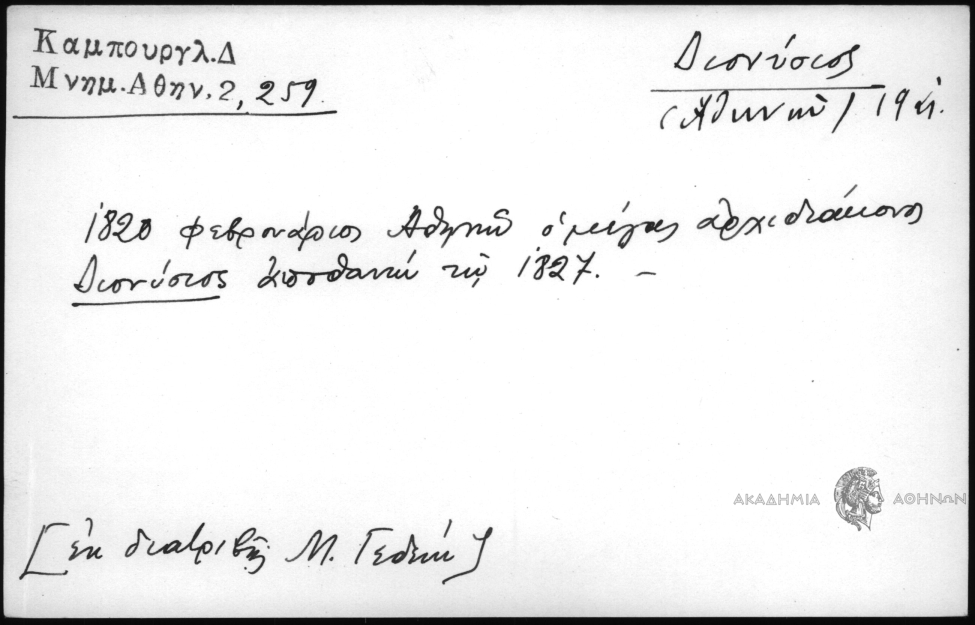 Καμπουργλ.Δ
Μνημ.Αθην.2, 259.
Διονύσιος
(Ἀθηνῶν) 19
1820 φεβρουάριος Ἀθηνῶν ὁ μέγας ἀρχιδιάκονος
Διονύσιος ἀποθανὼν τῷ 1827. –
ΑΚΑΔΗΜΙΑ ΑΘΗΝΩΝ
[ἐκ διατριβῆς Μ. Γεδεὼν]